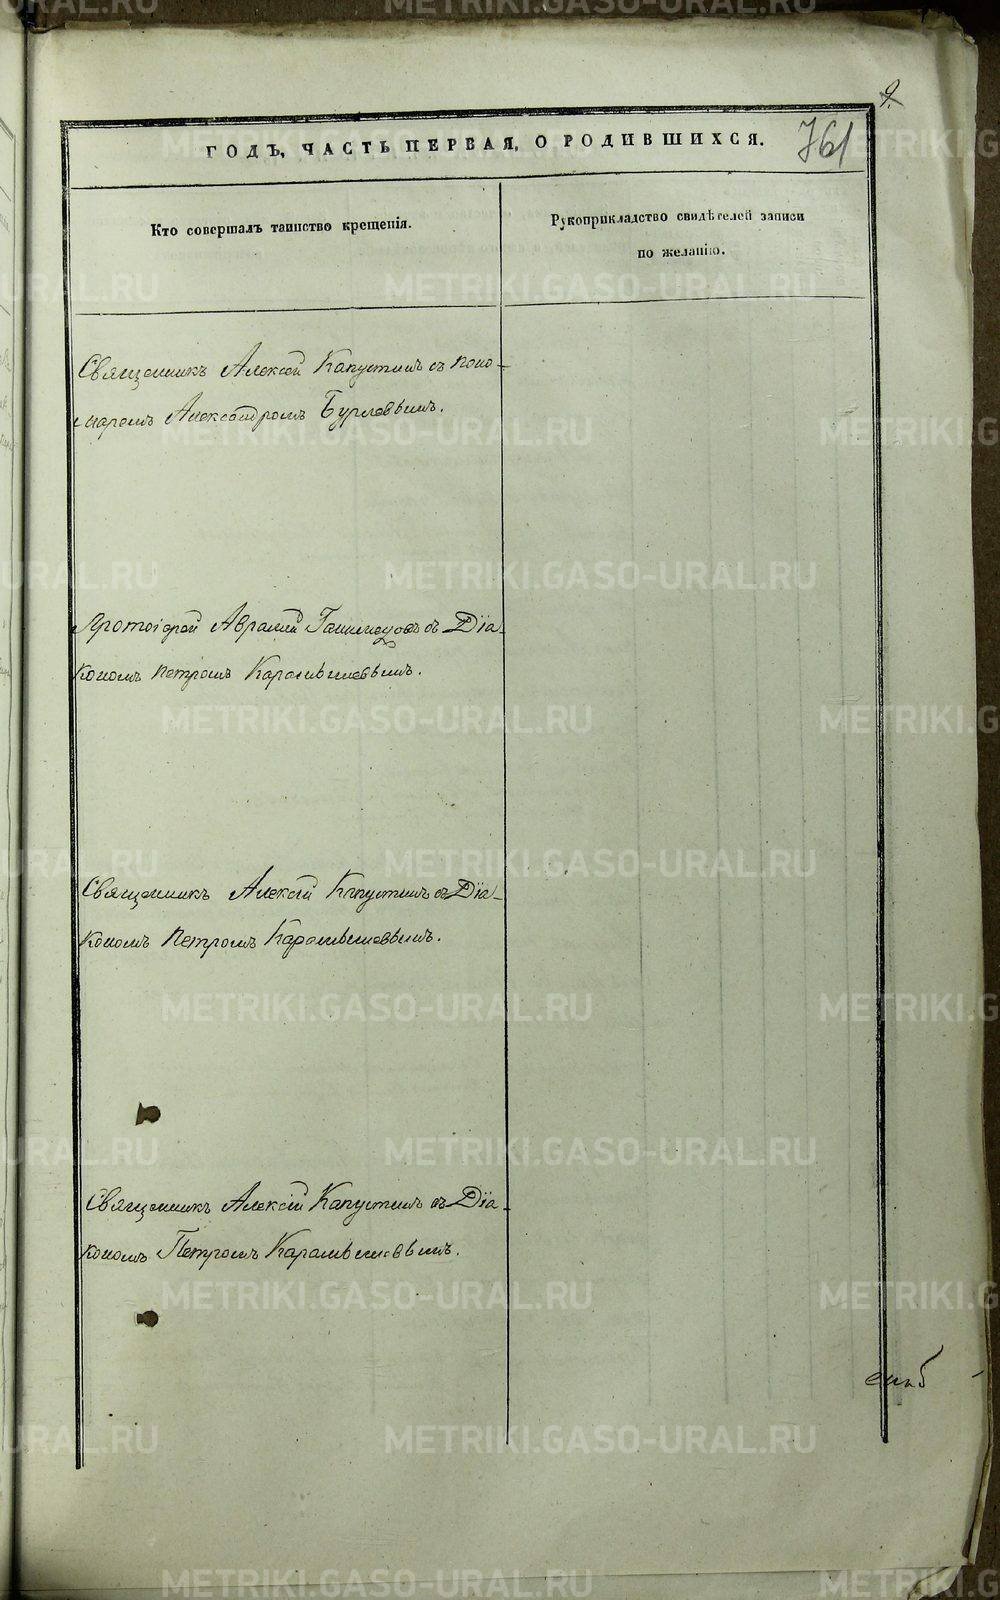 9.
ГОДЪ, ЧАСТЬ ПЕРВАЯ, О РОДИВШИХСЯ. 761
Кто совершалъ таинство крещенія.
Рукоприкладство свидѣтелей записи
по желанію.
Священникъ Алексѣй Капустинъ съ поно-
маремъ Александромъ Бурлевымъ.
Протоіерей Аврамій съ Діа-
кономъ Петромъ Карамышевымъ.
Священникъ Алексѣй Капустинъ съ Діа-
кономъ Петромъ Карамышевымъ.
Священникъ Алексій Капустинъ съ Діа-
кономъ Петромъ Карамышевымъ.
METRIKI.GASO-URAL.RU